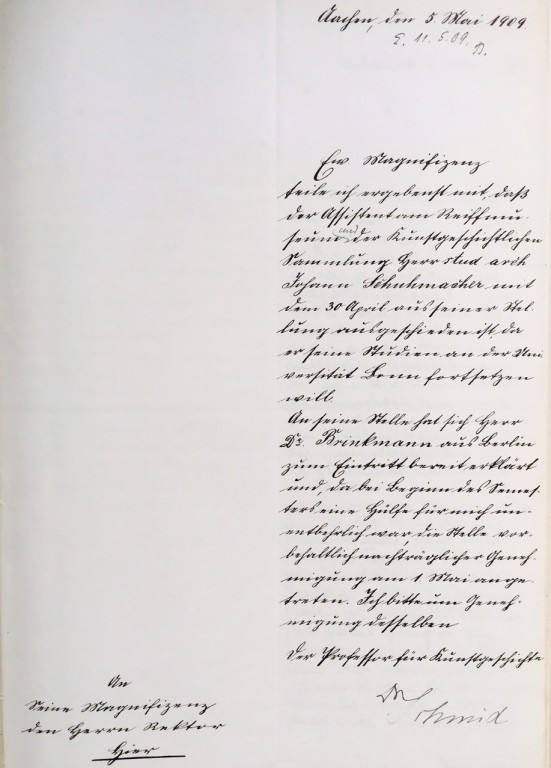 Aachen, den 5. Mai 1909.
E. 11. 5. 09.
B.
Ew Magnifizenz
teile ich ergebenst mit, daß
der Assistent am Reiffmu-
seum und der Kunstgeschichtlichen
Sammlung Herr stud arch
Johann Schuhmacher mit
dem 30 April aus seiner Stel-
lung ausgeschieden ist, da
er seine Studien an der Uni
versität Bonn fortsetzen
will.
An seine Stelle hat sich Herr
Dr. Brinkmann aus Berlin
zum Eintritt bereit erklärt
und, da bei Beginn des Semes-
ters eine Hülfe für mich un-
entbehrlich war, die Stelle vor-
behaltlich nachträglicher Geneh-
migung am 1. Mai ange-
treten. Ich bitte um Geneh-
migung desselben
Der Professor für Kunstgeschichte
Schmid
An
Seine Magnifizenz
den Herrn Rektor
Hier